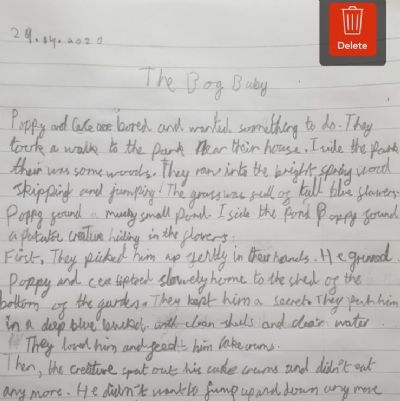 Delete
29.04.2020
The Bog Baby
Poppy and were bored and wanted something to do. They
took a walk to the park near their house. I side the park
their was some woods. They ran into the bright spring wood
skipping and jumping. The grass was full of tall blue flowers.
Poppy found a mudy small pond. I side the pond Poppy found
a creature hiding in the flowers.
First, They picked him up in their hands. He grinned.
Poppy and tiptoed slowely home to the shed of the
bottom of the garden. They kept him a secret. They put him
in a deep blue bucket with clean shells and clean water.
They loved him and feed him cake crums.
Then, the creature spat out his cake crums and didn't eat
any more. He didn't want to jump up and down any more